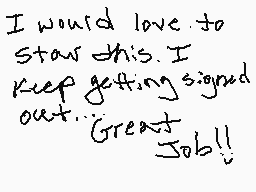 I would love to
star this. I
keep getting signed
out...
Great
Job!!